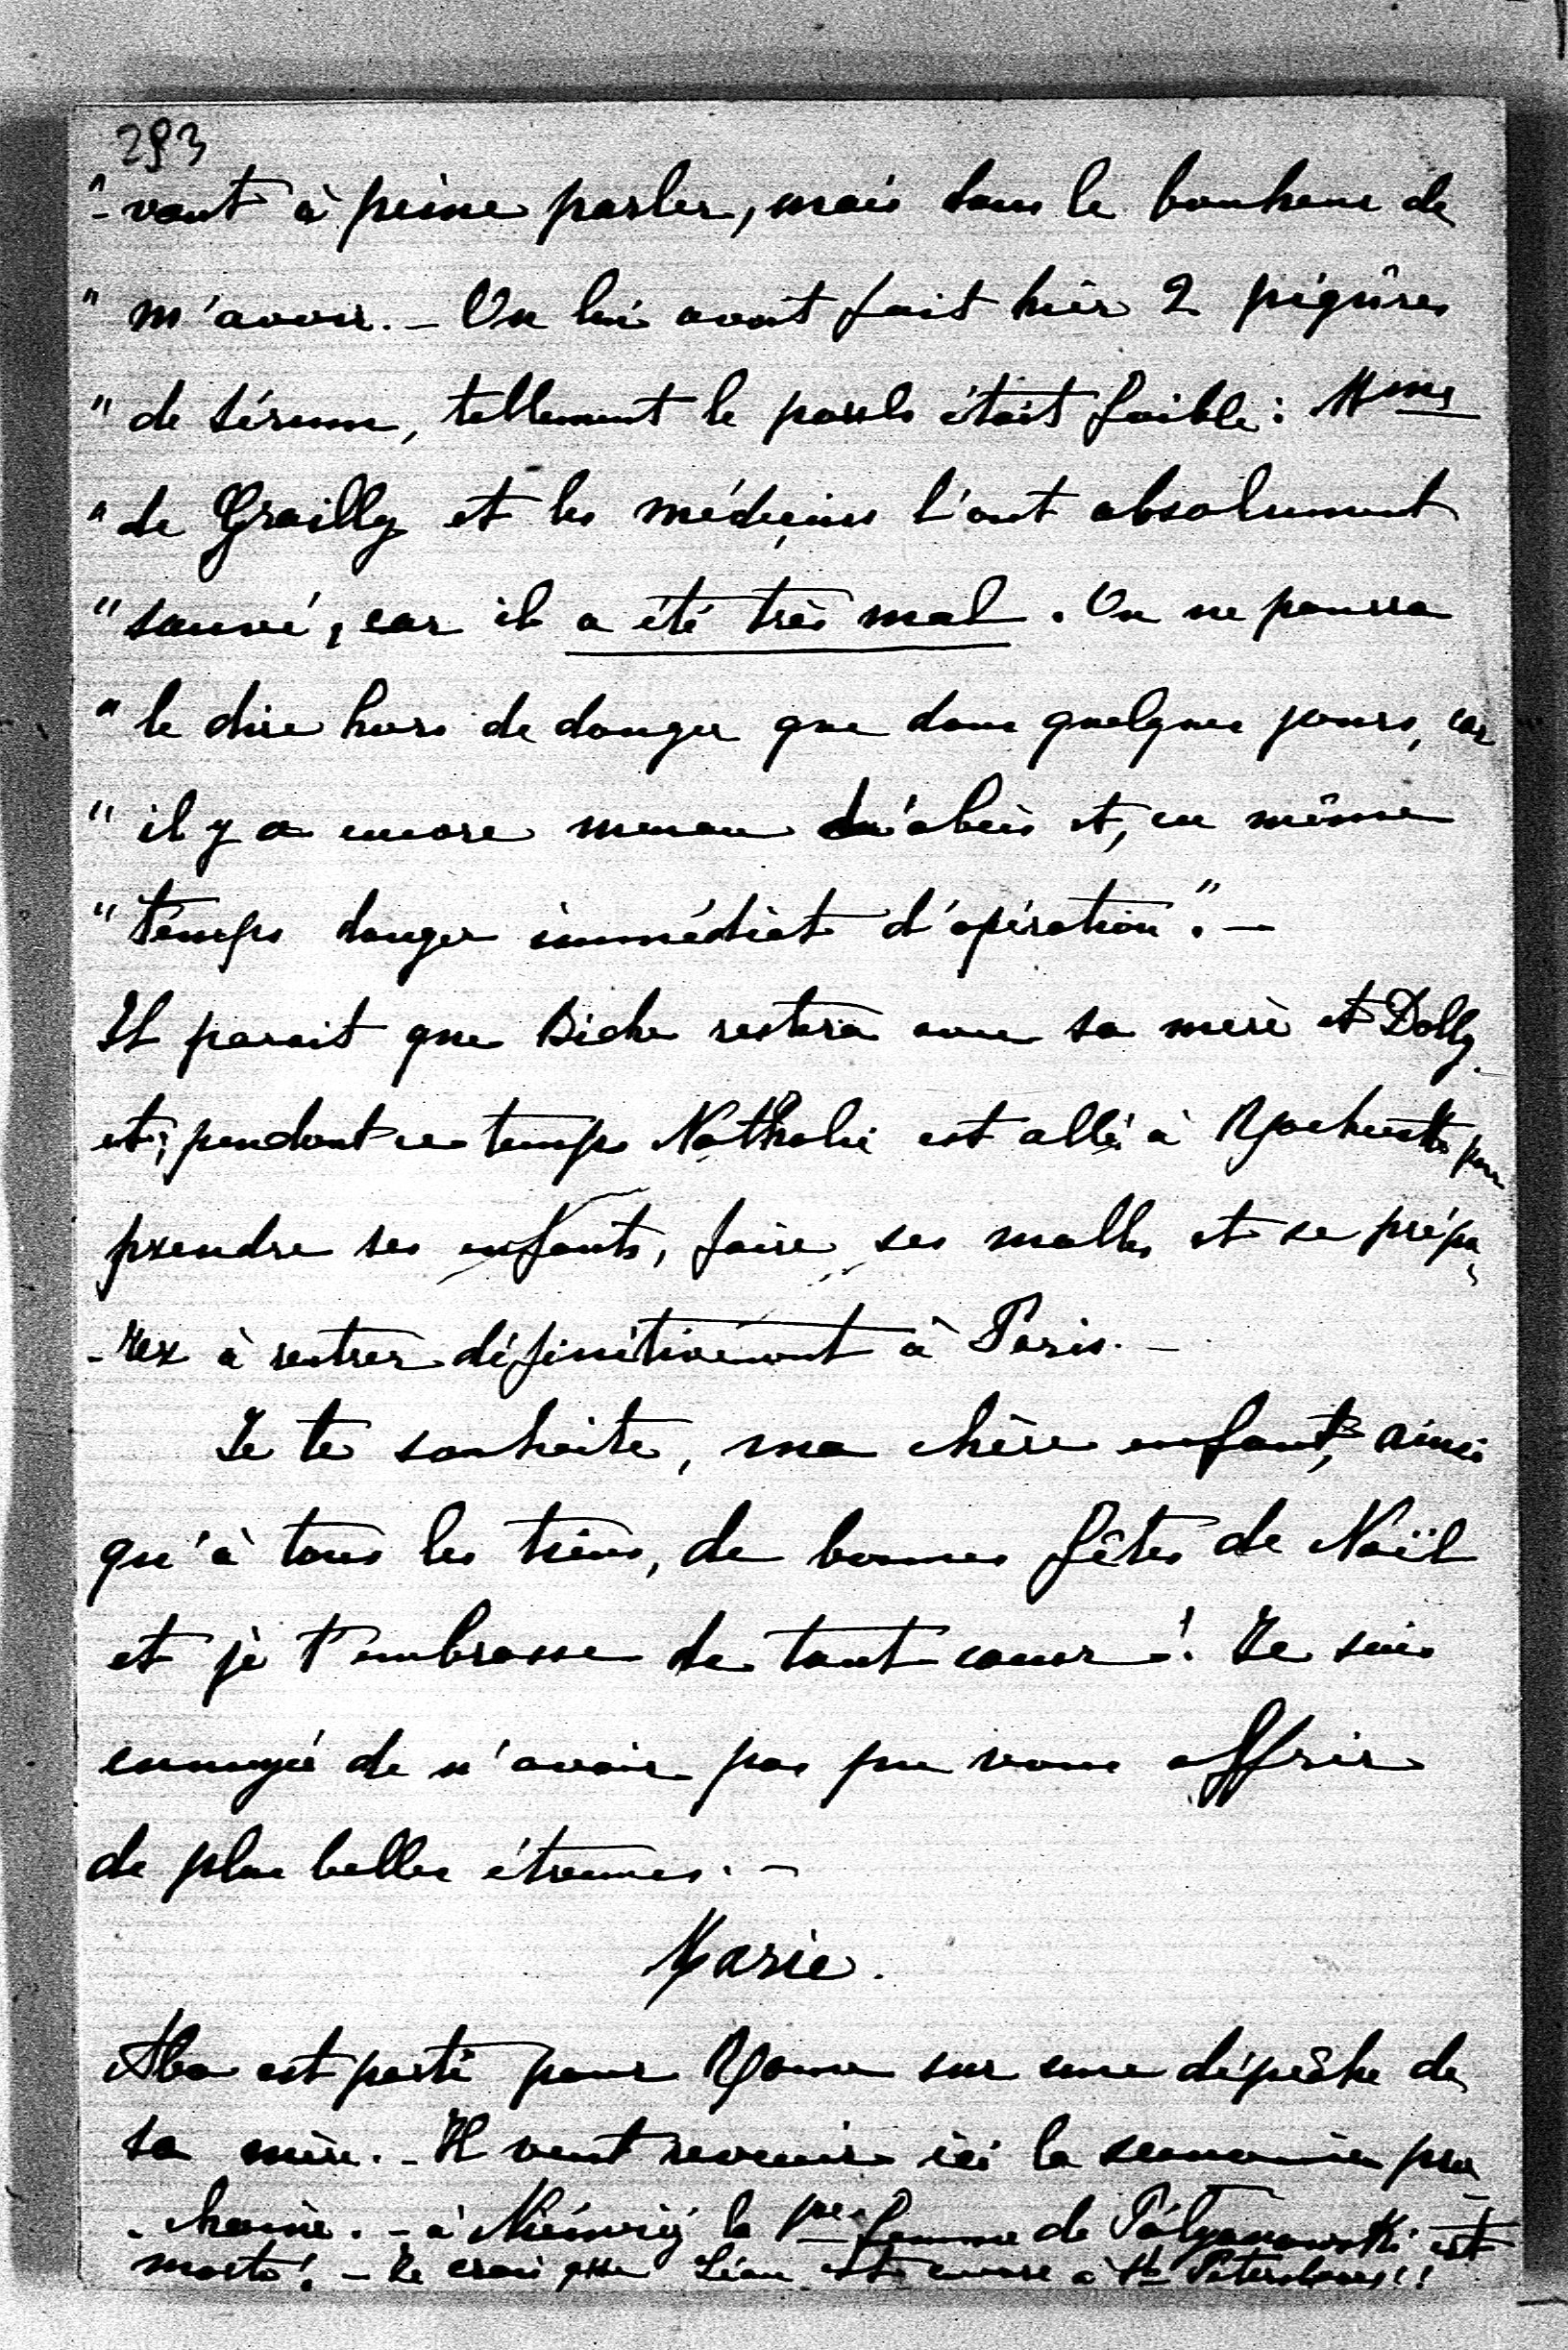 293
"-vant à peine parler, mais dans le bonheur de
" m'avoir. - On lui avait fait hier 2 piqûres
" de sérum, tellement le pouls était faible: Mme
" de Grailly et les médecins l'ont absolument
" sauvé, car il a été très mal. On ne pourra
" le dire hors de danger que dans quelques jours, car
" il y a encore menace d'abcès et, en même
" temps danger immédiat d'opération". -
Il parait que Biche restera avec sa mère et Dolly
et, pendant ce temps Nathalie est allée à pour
prendre ses enfants, faire ses malles et se prépa
-rer à rentrer définitivement à Paris. -
Je te souhaite, ma chère enfant, ainsi
qu'à tous les tiens, de bonnes fêtes de Noël
et je t'embrasse de tout cœur! Je suis
ennuyée de n'avoir pas pu vous offrir
de plus belles étrennes. -
Marie.
est parti pour Rome sur une dépêche de
sa mère. - Il veut revenir ici la semaine pro
-chaine. - à la femme de est
morte! - Je crois que Léon est encore à St Petersbourg!!